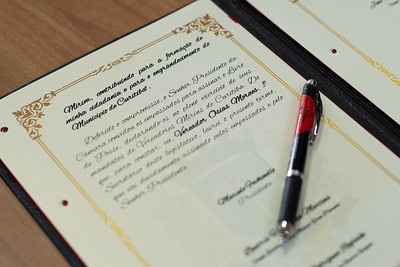 Mirim, contribuindo para a formação de
minha cidadania e para o engrandecimento do
Município de Curitiba".
Deferido o compromisso, o Senhor Presidente da
Câmara convidou os empossados para assinar o Livro
de Posse, declarando-os no pleno exercício de seus
mandatos de Vereadores Mirins de Curitiba. Do
que, para constar, eu, Vereador Osias Moraes, 1º
Secretário deste legislativo, lavrei o presente termo,
que vai devidamente assinado pelos empossados e pelo
Senhor Presidente.
Presidente